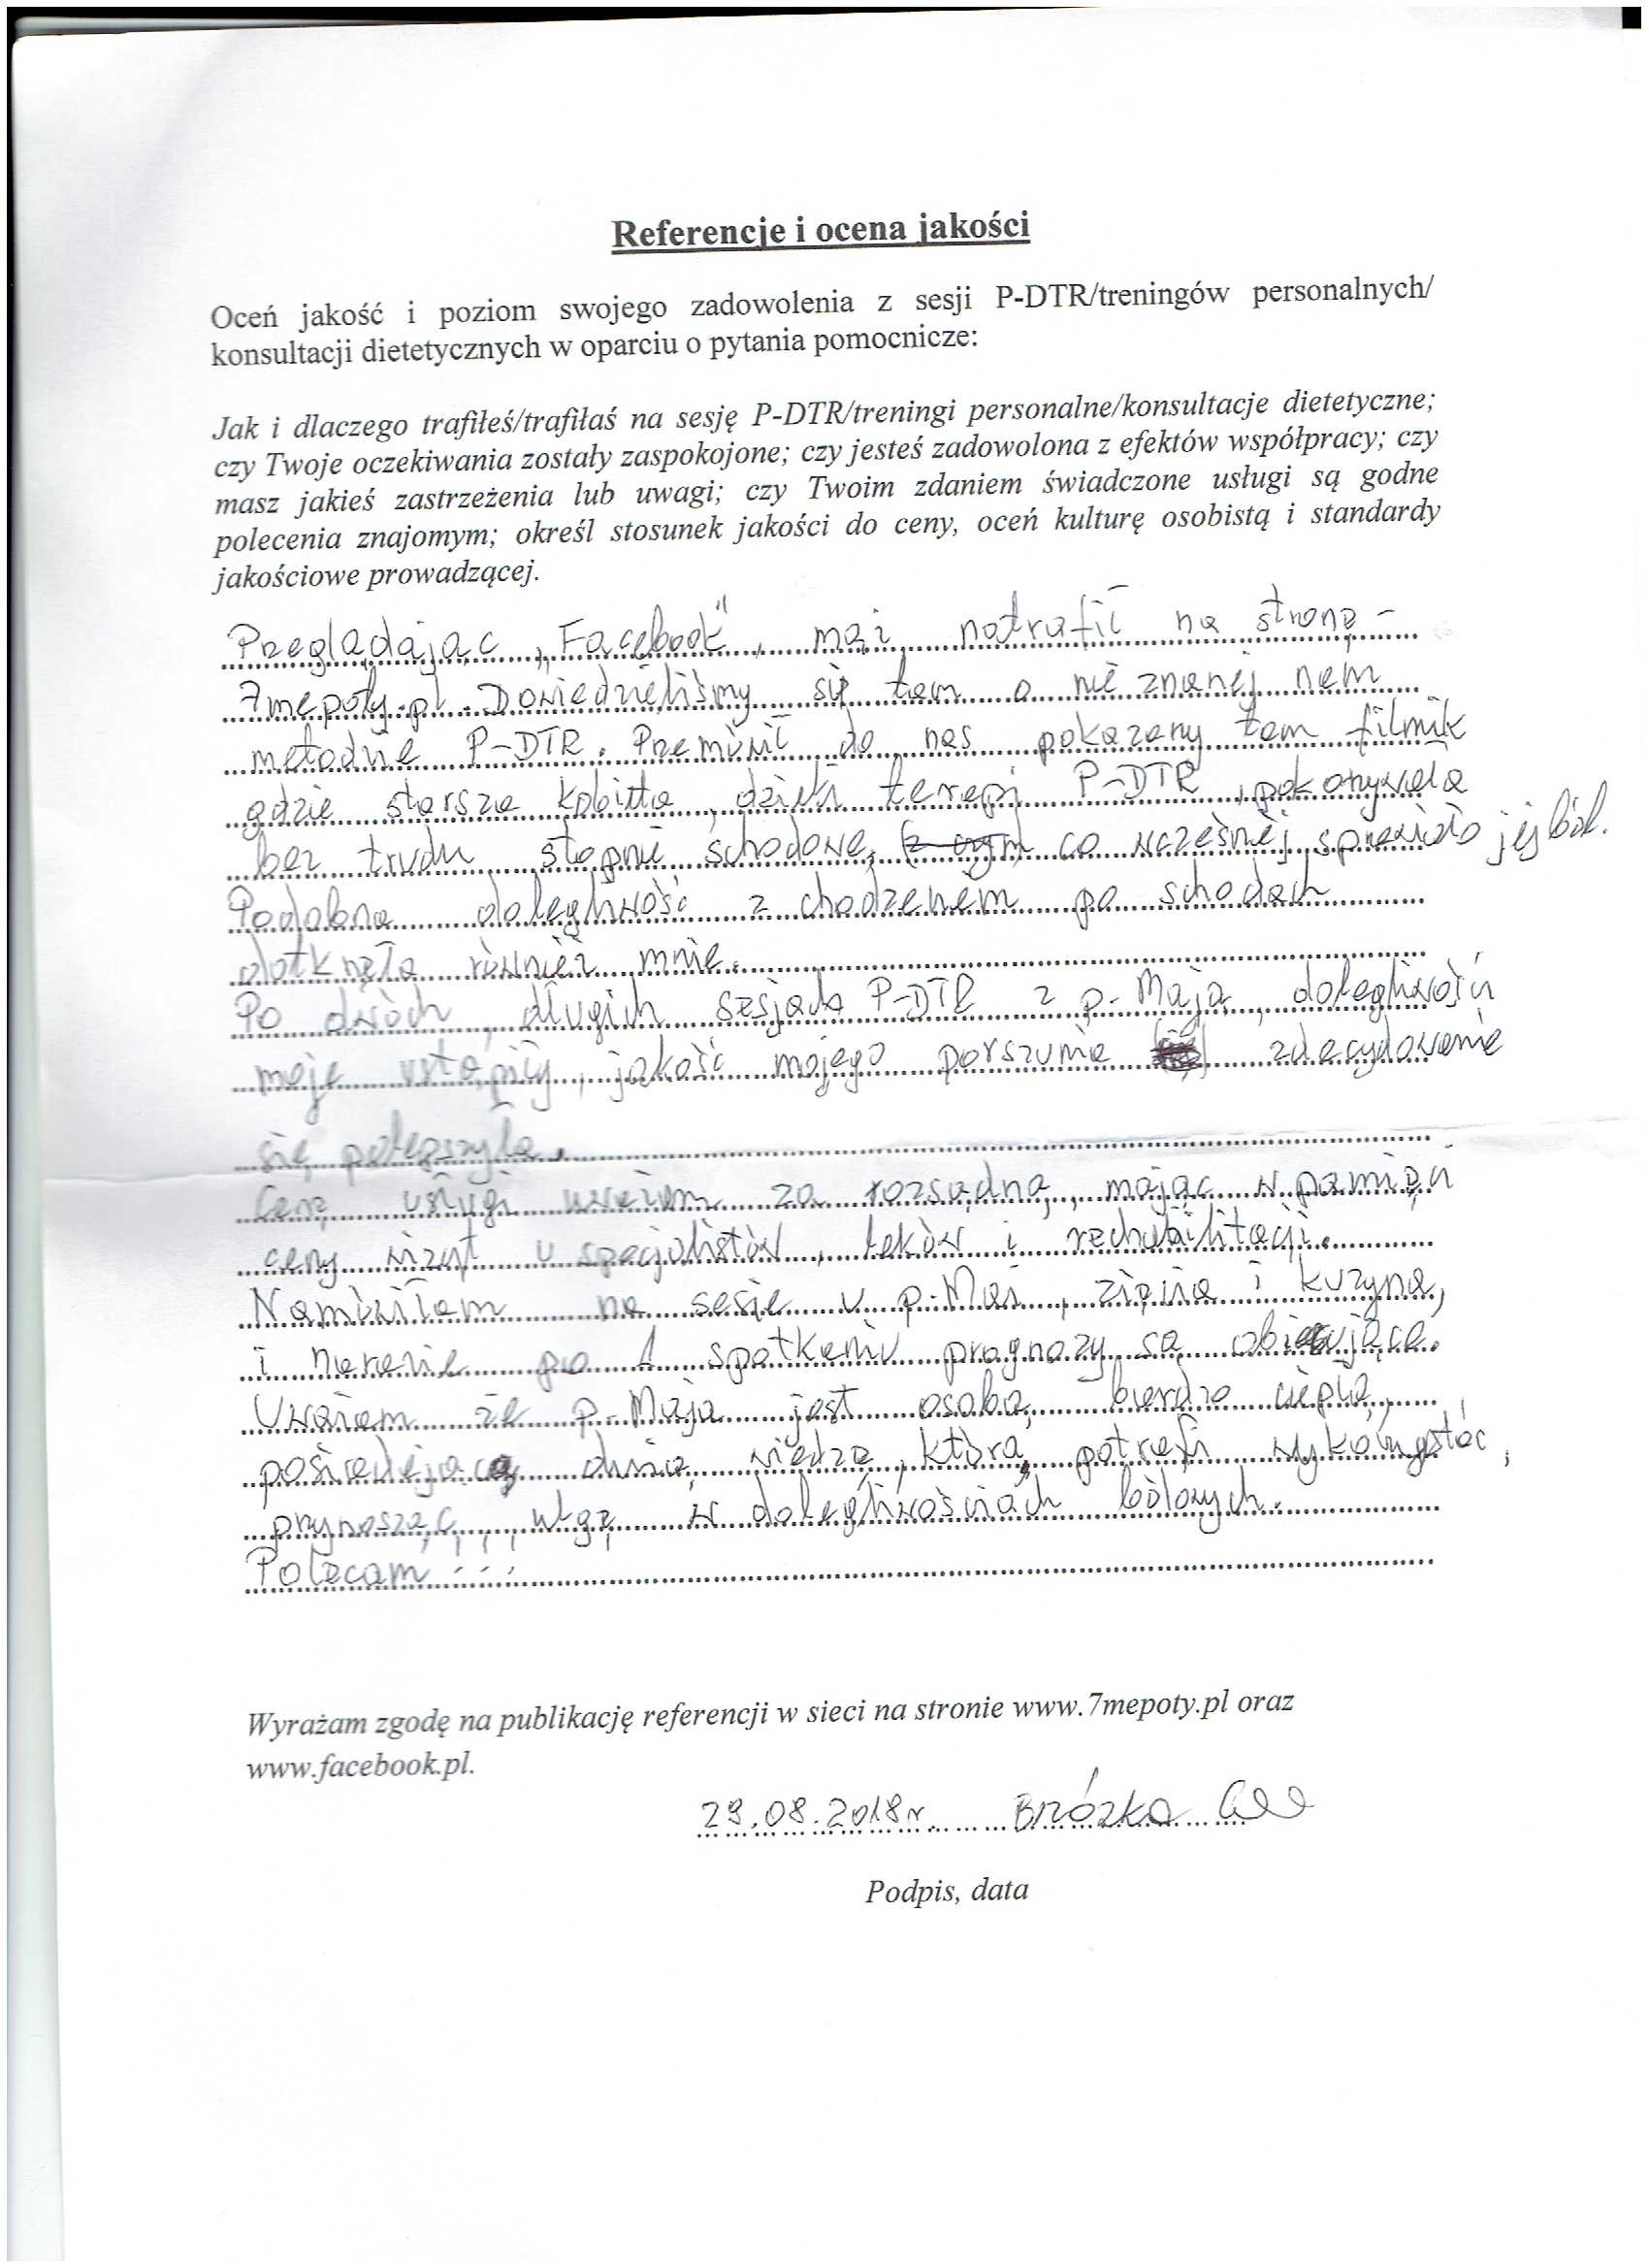 Referencje i ocena jakości
Oceń jakość i poziom swojego zadowolenia z sesji P-DTR/treningów personalnych/
konsultacji dietetycznych w oparciu o pytania pomocnicze:
Jak i dlaczego trafiłeś/trafiłaś na sesję P-DTR/treningi personalne/konsultacje dietetyczne;
czy Twoje oczekiwania zostały zaspokojone; czy jesteś zadowolona z efektów współpracy; czy
masz jakieś zastrzeżenia lub uwagi; czy Twoim zdaniem świadczone usługi są godne
polecenia znajomym; określ stosunek jakości do ceny, oceń kulturę osobistą i standardy
jakościowe prowadzącej.
Przeglądając „Facebook", mąż natrafił na stronę -
7mepoty.pl. Dowiedzieliśmy się tam o nie znanej nam
metodzie P-DTR. Przemówił do nas pokazany tam filmik
gdzie starsza kobitta, dzięki terapi P-DTR, pokonywała
bez trudu stopnie schodowe, (z czym) co wcześniej sprawiało jej ból.
Podobna dolegliwość z chodzeniem po schodach
dotknęła również mnie.
Po dwóch, długich sesjach P-DTR z p. Mają, dolegliwości
moje ustąpiły, jakość mojego porszumie zdecydowanie
się polepszyła.
Cenę usługi uważam za rozsądną, mając w pamięci
ceny wizyt u specjalistów, leków i rechabilitacji.
Namówiłam na sesie u p. Mai, zięcia i kuzyna,
i narazie po 1 spotkaniu prognozy są obiecujące.
Uważam że p. Maja jest osobą bardzo ciepłą,
posiadającą dużą wiedzę, którą potrafi wykorzystać,
przynosząc, ulgę w dolegliwościach bólowych.
Polecam !!!
Wyrażam zgodę na publikację referencji w sieci na stronie www.7mepoty.pl oraz
www.facebook.pl.
29.08.2018r. Brózka
Podpis, data